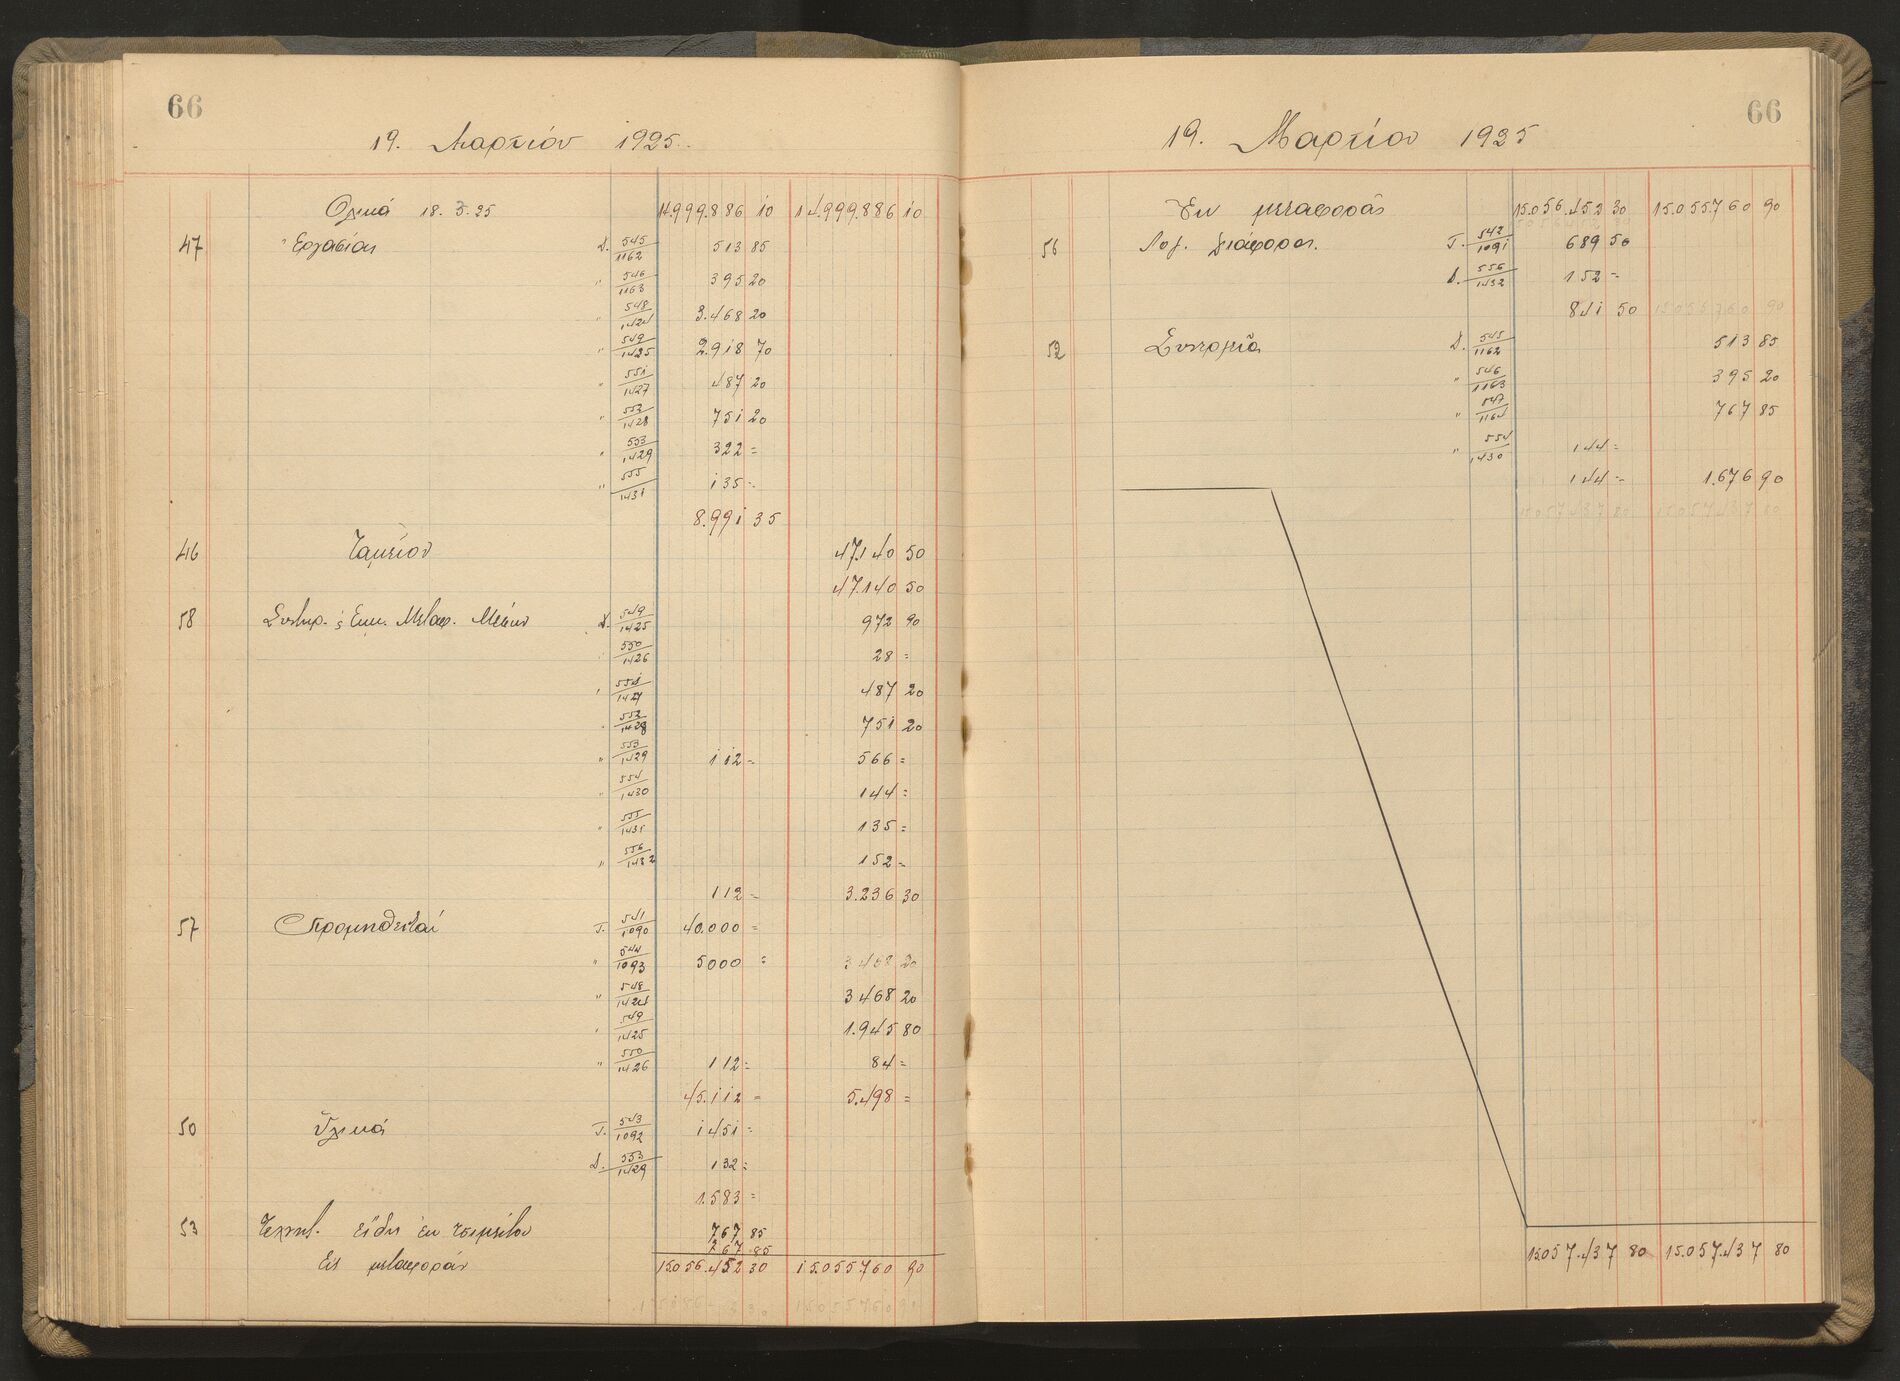 66
19. Μαρτίου 1925.
Ολικά 18.3.25 14.999.886 10 14.999.886 10
47 Εργασίαι Δ. 545/1162 513 85
" 546/1163 395 20
" 548/1424 3.468 20
" 549/1425 2.918 70
" 551/1427 487 20
" 552/1428 751 20
" 553/1429 322 =
" 555/1431 135 =
8.991 35
46 Ταμείον 47.140 50
47.140 50
58 Συντηρ. Μεταφ. Μέσων Δ. 549/1425 972 90
" 550/1426 28 =
" 551/1427 487 20
" 552/1428 751 20
" 553/1429 112 = 566 =
" 554/1430 144 =
" 555/1431 135 =
" 556/1432 152 =
112 = 3.236 30
57 Προμηθευταί Τ. 541/1090 40.000 =
" 544/1093 5000 = 3468 20
" 548/1424 3468 20
" 549/1425 1.945 80
" 550/1426 112 = 84 =
45.112 = 5.498 =
50 Υλικά Τ. 543/1092 1451 =
Δ. 553/1429 132 =
1.583 =
53 είδη εν 767 85
767.85
Εις μεταφοράν 15.056.452 30 15.055.760 90
66
19. Μαρτίου 1925
Εκ μεταφοράς 15.056.452 30 15.055.760 90
56 Λογ. διάφοροι. Τ. 542/1091 689 50
Δ. 556/1432 152 =
841 50 15055760 90
52 Δ. 545/1162 513 85
" 546/1163 395 20
" 547/1164 767 85
" 554/1430 144 =
144 = 1.676 90
15.057.437 80 15.057.437 80
15.057.437 80 15.057.437 80